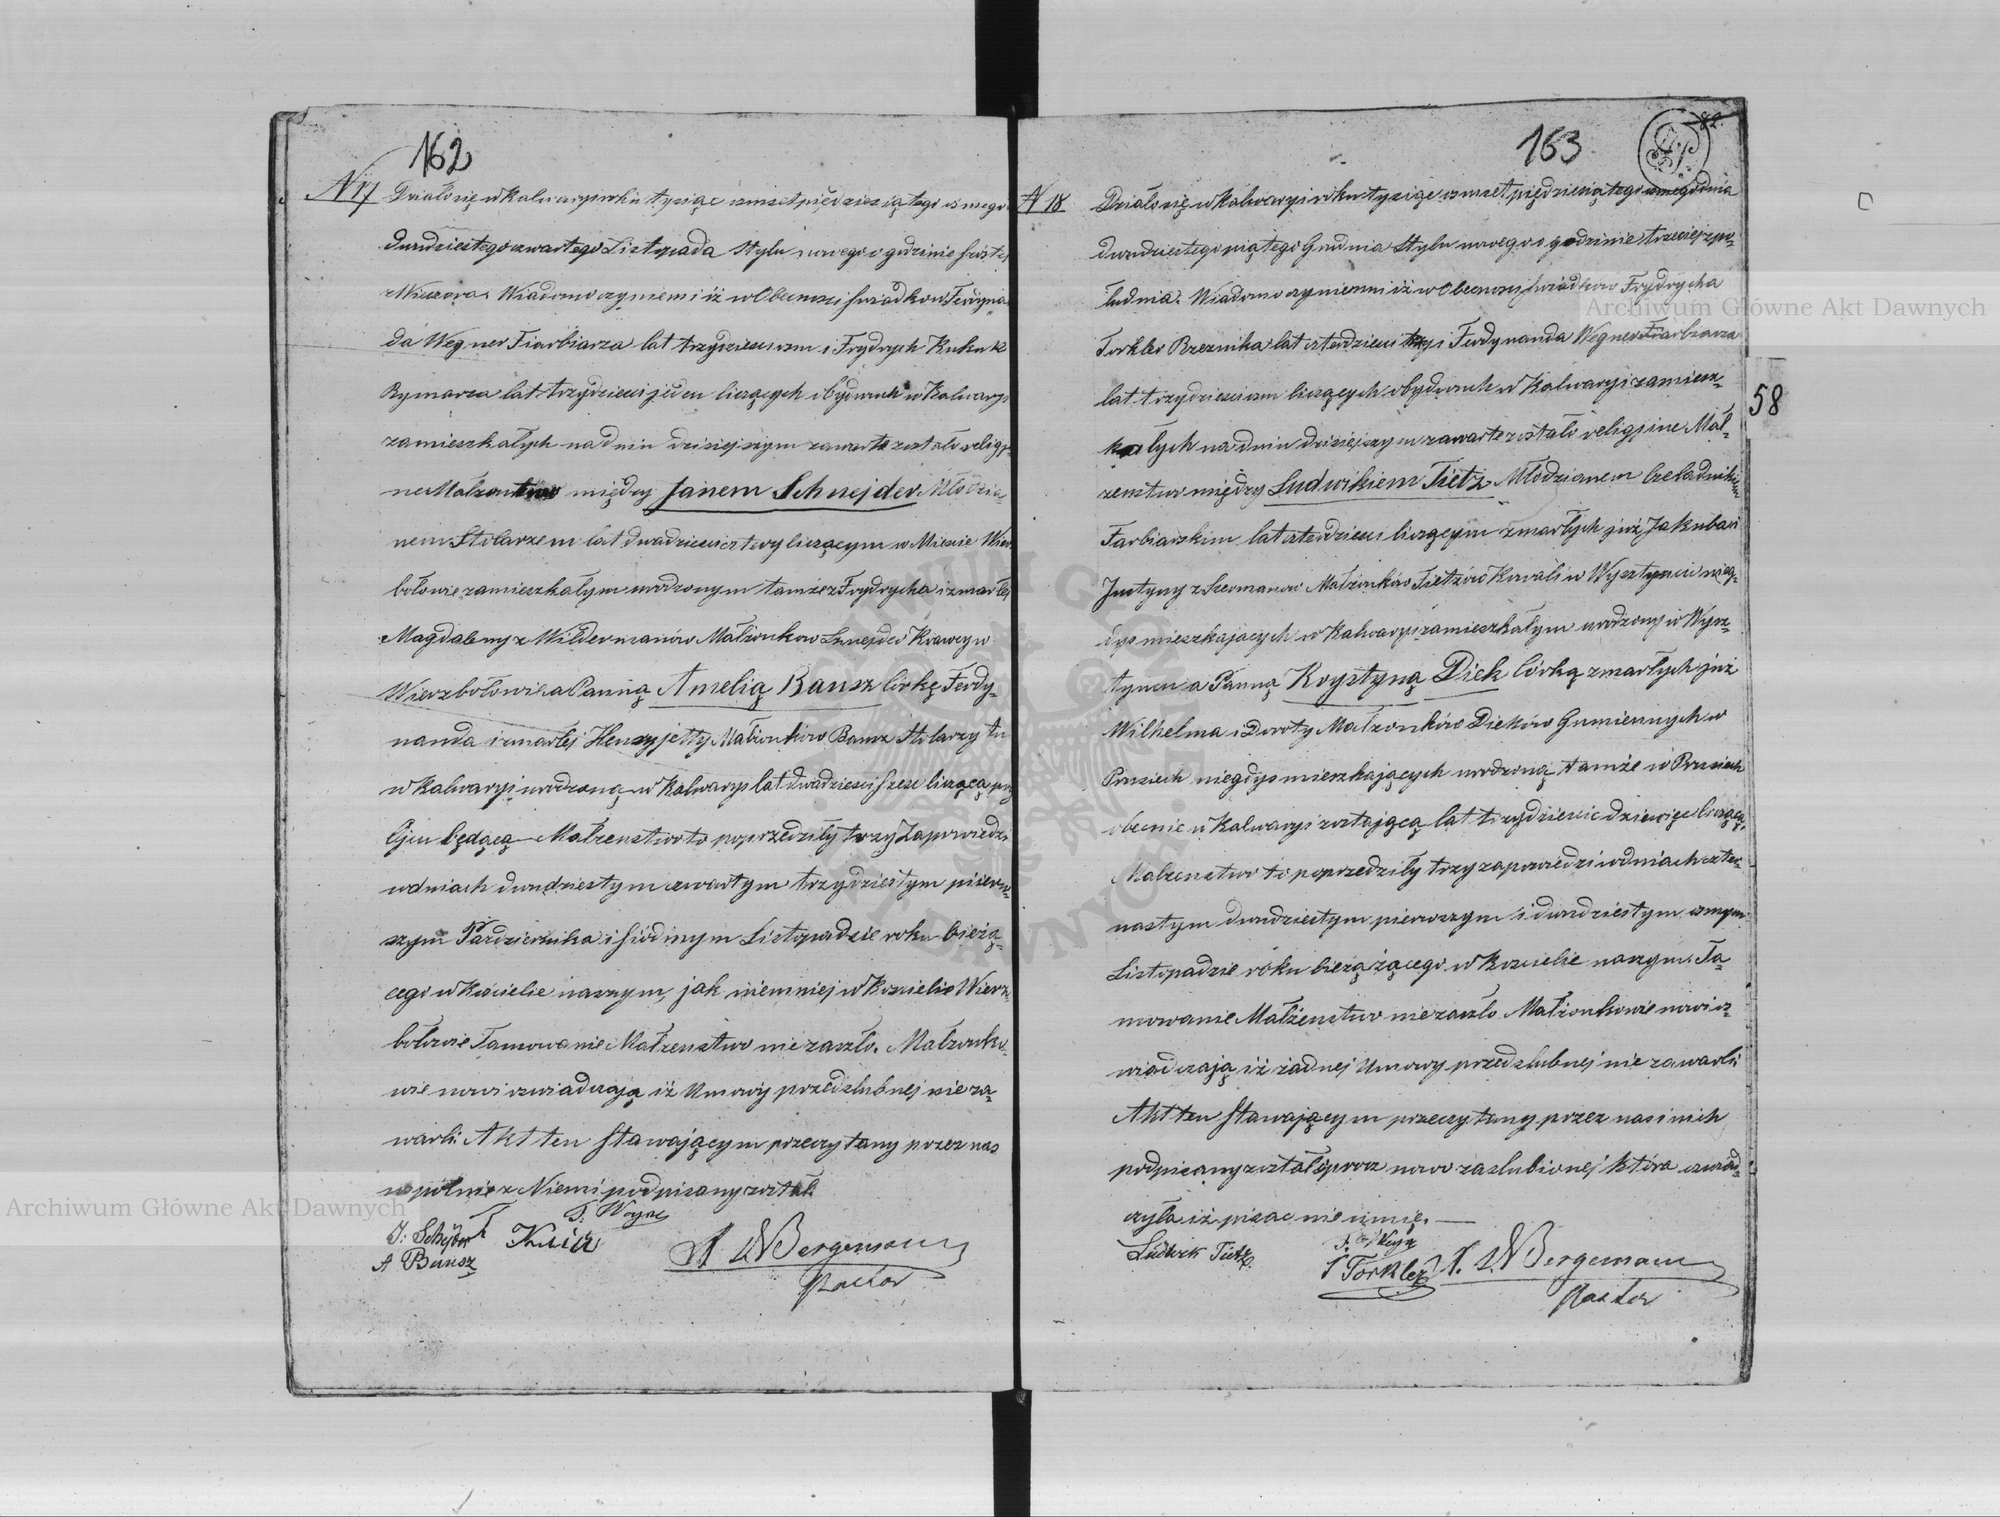 162
N 17
Działo się w Kalwaryi roku tysiąc osmset pięćdziesiątego osmego
dwudziestego czwartego Listopada stylu nowego o godzinie szóstej
z Wieczora. Wiadomo czyniemi iż w Obecnosci swiadkow Ferdyna
da Wegner Fiarbiarza lat trzydziesci osm i Frydrych Kukuk
Rymarza lat trzydziesci jeden liczących obydwuch w Kalwaryi
zamieszkałych na dniu dzisiejszym zawarte zostało religij-
ne Małzenstwo między Janem Schnejder Młodzia-
nem Stolarzem lat dwadziescia cztery liczącym w Miescie Wierz
bołowie zamieszkałym urodzonym tamże z Frydrycha i zmarłej
Magdaleny z Wildermanów Małżonkow Sznejder Krawcy w
Wierzbołowie a Panną Amelią Bansz Córkę Ferdy-
nanda i zmarłej Henryjetty Małżonkow Bansz Stolarzy tu
w Kalwaryi urodzoną w Kalwaryi lat dwadziescia szesc liczącą przy
Ojcu będącą Małżenstwo to poprzedziły trzy Zapowiedzi
w dniach dwudziestym czwartym trzydziestym pierw-
szym Pazdziernika i siódmym Listopadzie roku bieżą-
cego w Kościelie naszym jak niemniej w Koscielie Wierz-
bołowie Tamowanie Małżenstwo nie zaszło. Małzonko-
wie nowi oswiadczają iż Umowy przedslubnej nie za-
warli. Akt ten stawającym przeczytany przez nas
wspólnie z Niemi podpisany został
F. Wegner
J: Schyder Kukuk
A Bansz
A W Bergemann
Pastor
163
82
N 18
Działo się w Kalwaryi roku tysiąc osmset pięćdziesiątego osmego dnia
dwudziestego piątego Grudnia stylu nowego o godzinie trzeciej z po-
ludnia. Wiadomo czyniemi iż w Obecnosci swiadków Frydrycha
Torkler Rzeznika lat czterdziesci trzy i Ferdynanda Wegner Fiarbiarza
lat trzydziesci osm liczących obydwuch w Kalwaryi zamiesz-
kałych na dniu dzisiejszym zawarte zostało religijne Mał-
zenstwo między Ludwikiem Tietz Młodzianem Czeladnikiem
Farbiarskim lat czterdziesci liczącym zmarłych już Jakuba i
Justyny z Szermanow Małżonków Tietzów Kowali w Wysztyncu nieg-
dys mieszkajacych w Kalwaryi zamieszkałym urodzony w Wysz-
tyncu a Panną Krystyną Diek Córką zmarłych już
Wilhelma i Doroty Małżonków Dieków Gumiennych w
Prusiech niegdys mieszkających urodzoną tamże w Prusiech
obecnie w Kalwaryi zostającą lat trzydziescie dziewięc liczącą,
Małzenstwo to poprzedziły trzy zapowiedzi w dniach czter-
nastym dwudziestym pierwszym i dwudziestym osmym
Listopadzie roku bieżążącego w Koscielie naszym. Ta-
mowanie Małżenstwo nie zaszło. Małżonkowie nowi os-
wiadczają iż żadnej Umowy przedslubnej nie zawarli
Akt ten stawającym przeczytany przez nas i nich
podpisany został oprocz nowo zaslubionej która oswiad-
czyła iż pisac nie umie. —
Ludwik Tietz
F. Wegn
F Torkler
A. W Bergemann
Pastor
58
Archiwum Główne Akt Dawnych
Archiwum Główne Akt Dawnych